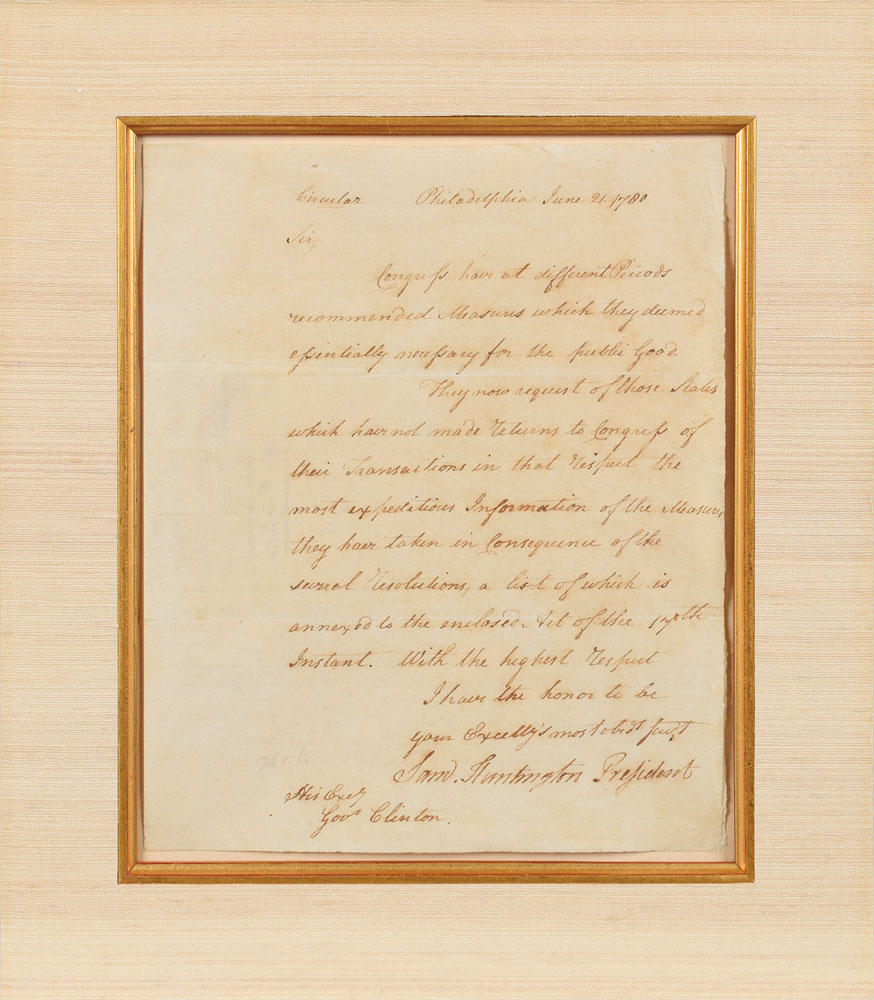 Circular Philadelphia June 21. 1780
Sir,
Congreſs have at different Periods
recommended Measures which they deemed
eſsentially neceſsary for the public Good.
They now request of those States
which have not made Returns to Congreſs of
their Transactions in that Respect, the
most expeditious Information of the Measures
they have taken in Consequence of the
several Resolutions, a list of which is
annexed to the enclosed Act of the 17th
Instant. With the highest Respect
I have the honor to be
your Excelly's most obedt servt
Saml. Huntington Preſident
His Excy
Govr Clinton.